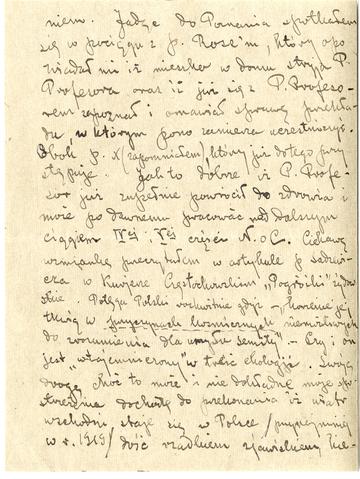 niem. Jadąc do Poznania spotkałem
się w pociągu z p. Rose'm, który opo
wiadał mi, iż mieszka w domu stryja P.
Profesora oraz iż już się z P. Profeso-
rem zapoznał i omawiał sprawę przekła-
du, w którym pono zamierza uczestniczyć.
Obok p. X (zapomniałem), który już do tego przy
stępuje. Jak to dobrze iż P. Profe-
sor już zupełnie powrócił do zdrowia i
może po dawnemu pracować nad dalszym
ciągiem IVej i Vej części N. o C. Ciekawą
wzmiankę przeczytałem w artykule p. 
w Kurjerze Częstochowskim "
 Potęga Polski rozkwitnie gdyż - korzenie jej
tkwią w przyczynach kosmicznych niemożliwych
do zrozumienia dla umysłu semity" - Czy i on
jest "wtajemniczony" w treść ekologji. Swoją
drogą choć to może i nie dokładne może 
 dochodzę do przekonania iż wiatr
wschodni staje się w Polsce /przynajmniej
w r. 1919/ dość rzadkiem zjawiskiem. Kie-